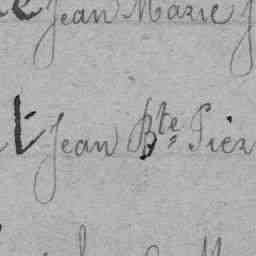 Jean Marie J
t Jean Bte Pier